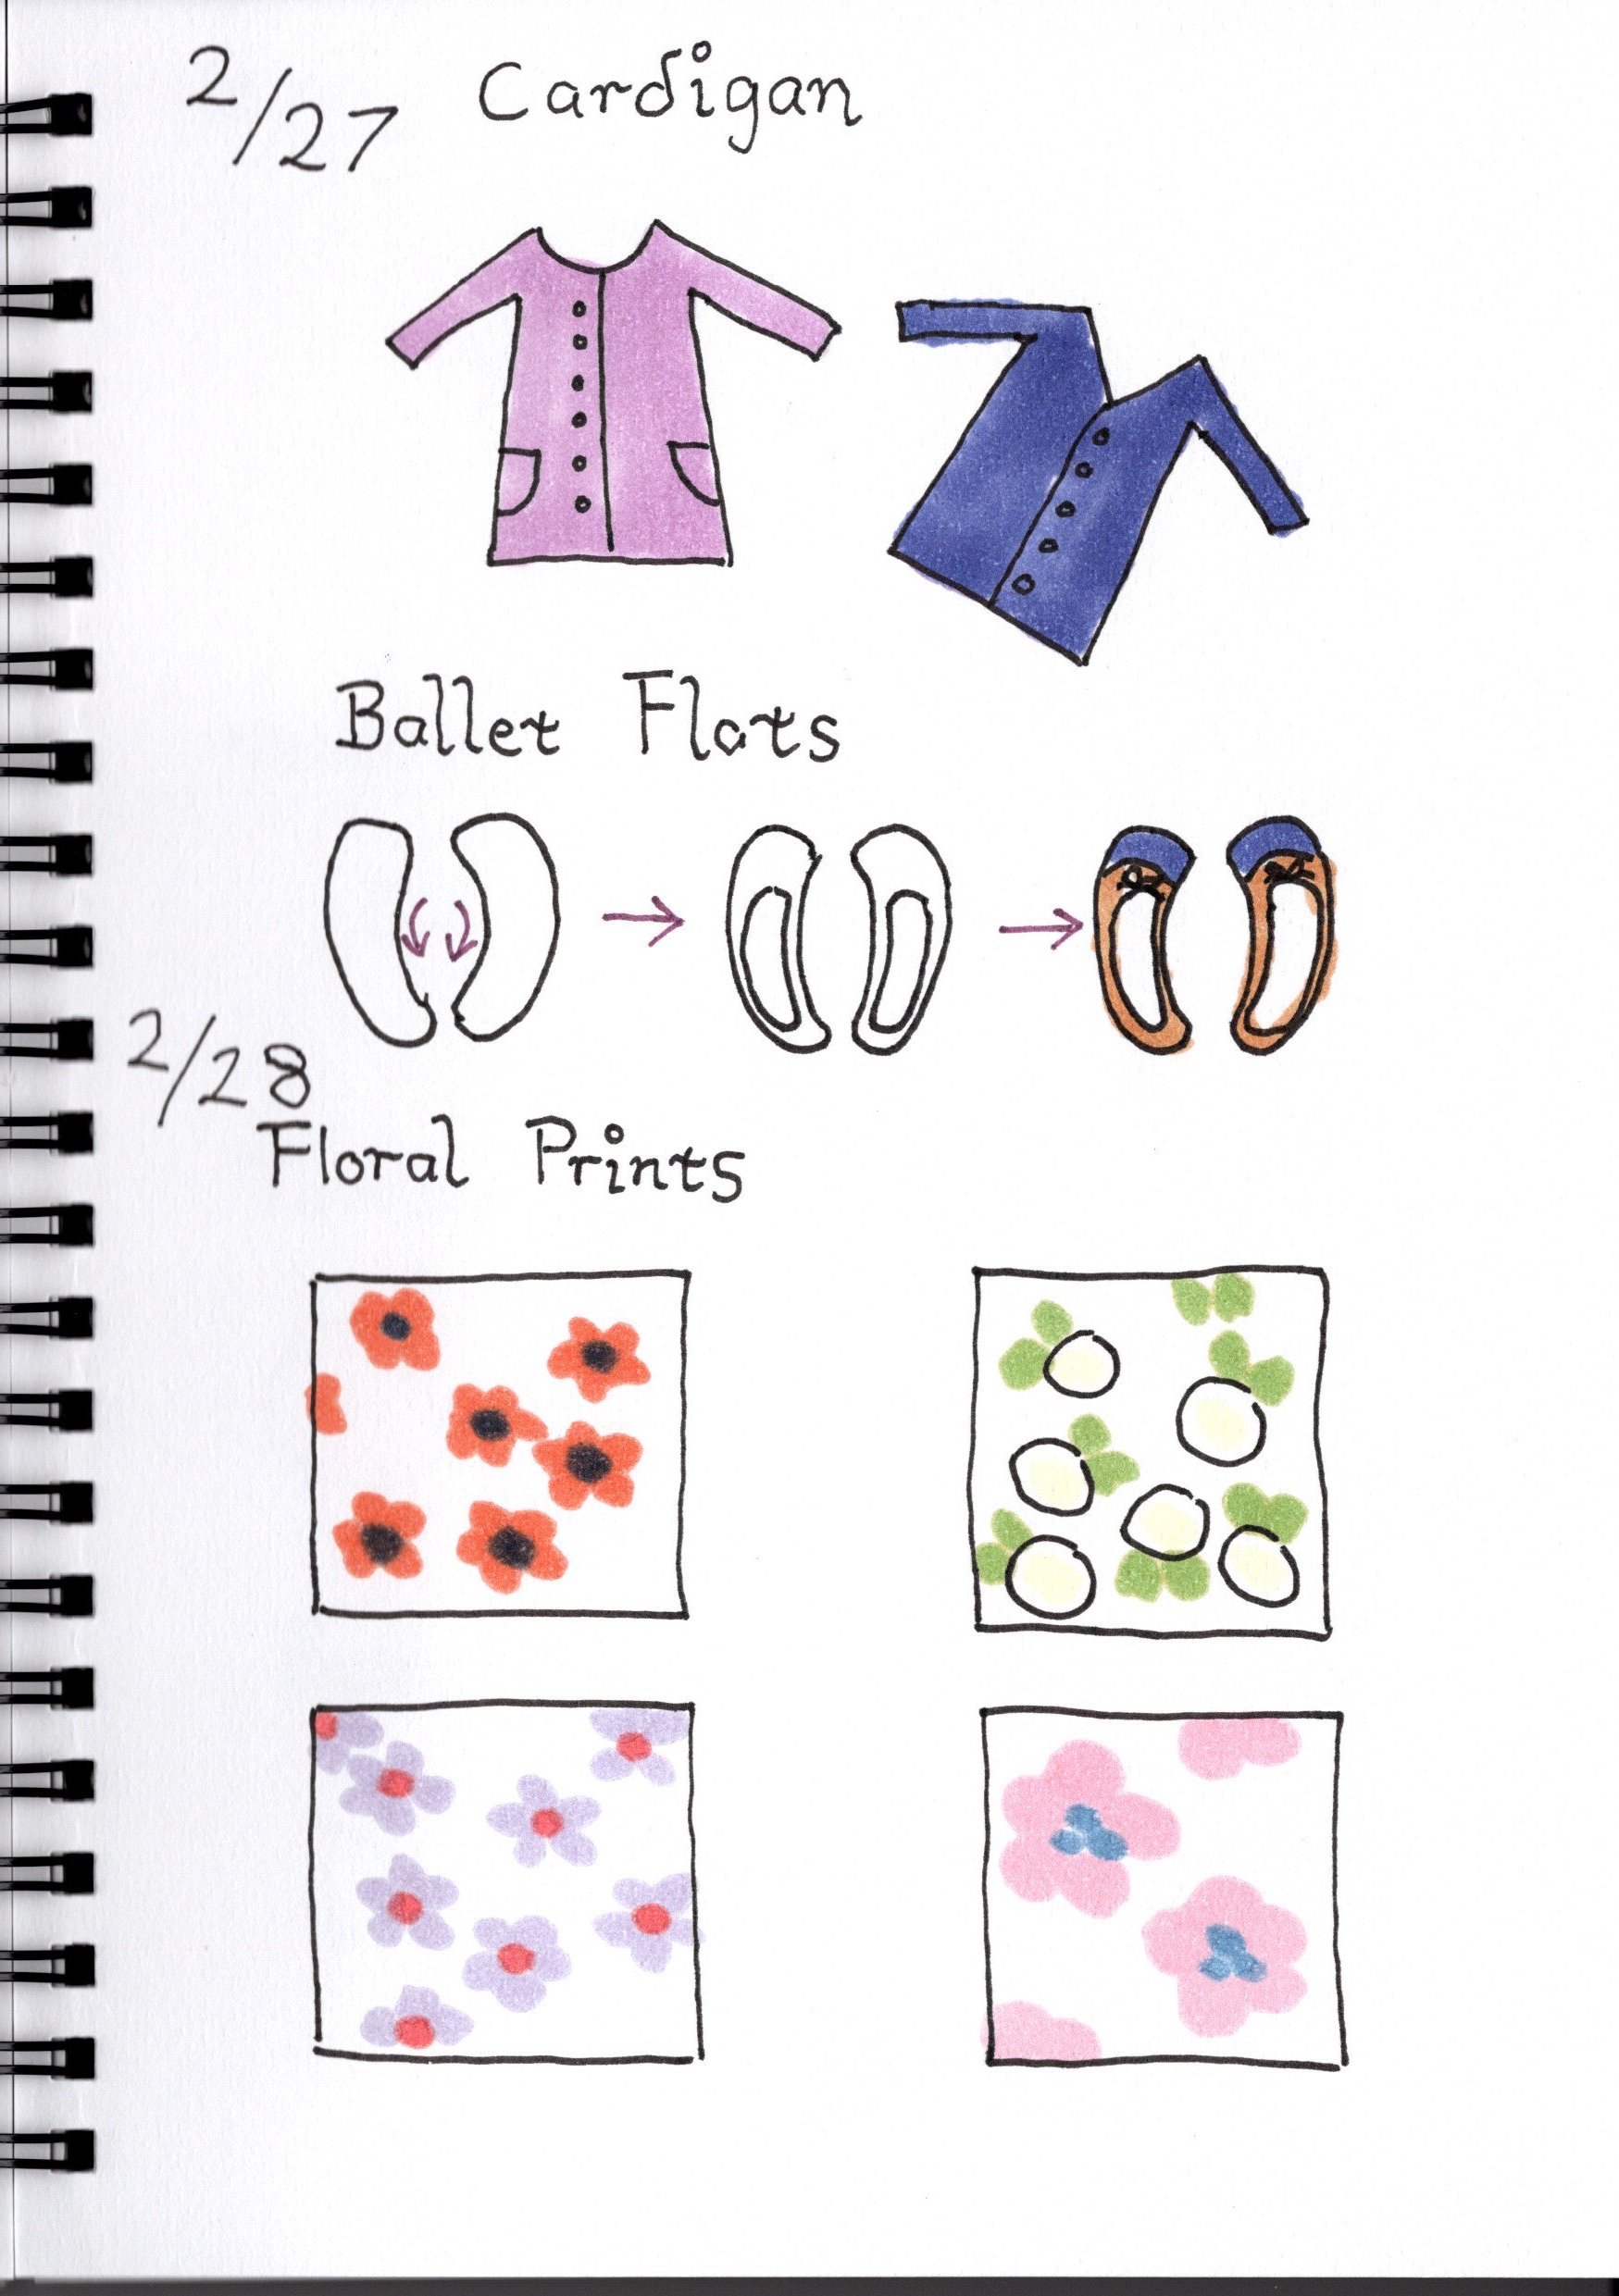 2/27 Cardigan
Ballet Flats
2/28
Floral Prints